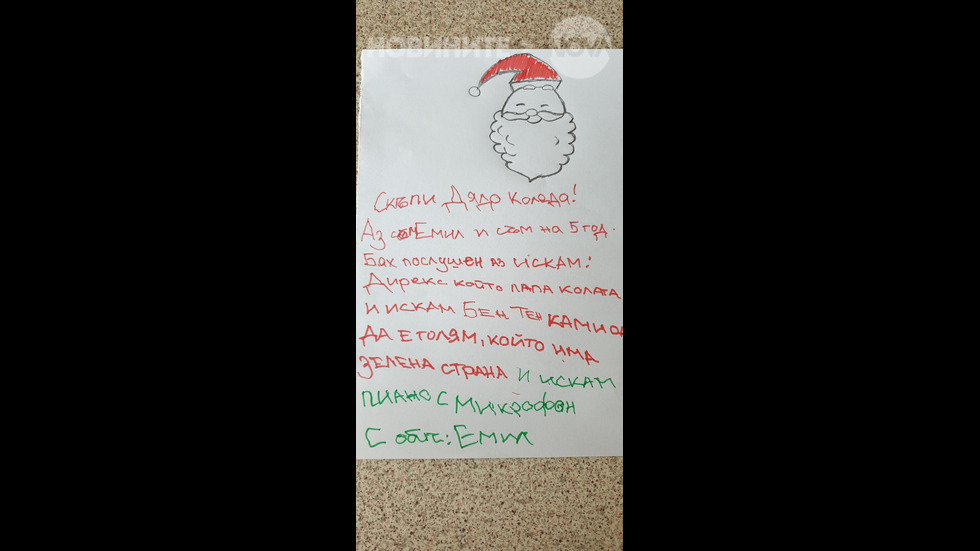 НОВИНИТЕ NOVA
Скъпи Дядо Коледа!
Аз съм Емил и съм на 5 год.
Бах послушен аз искам:
Дирекс който лапа колата
и искам Бен Тен камион
да е голям, който има
зелена страна и искам
пиано с микрофон
С обич: Емил